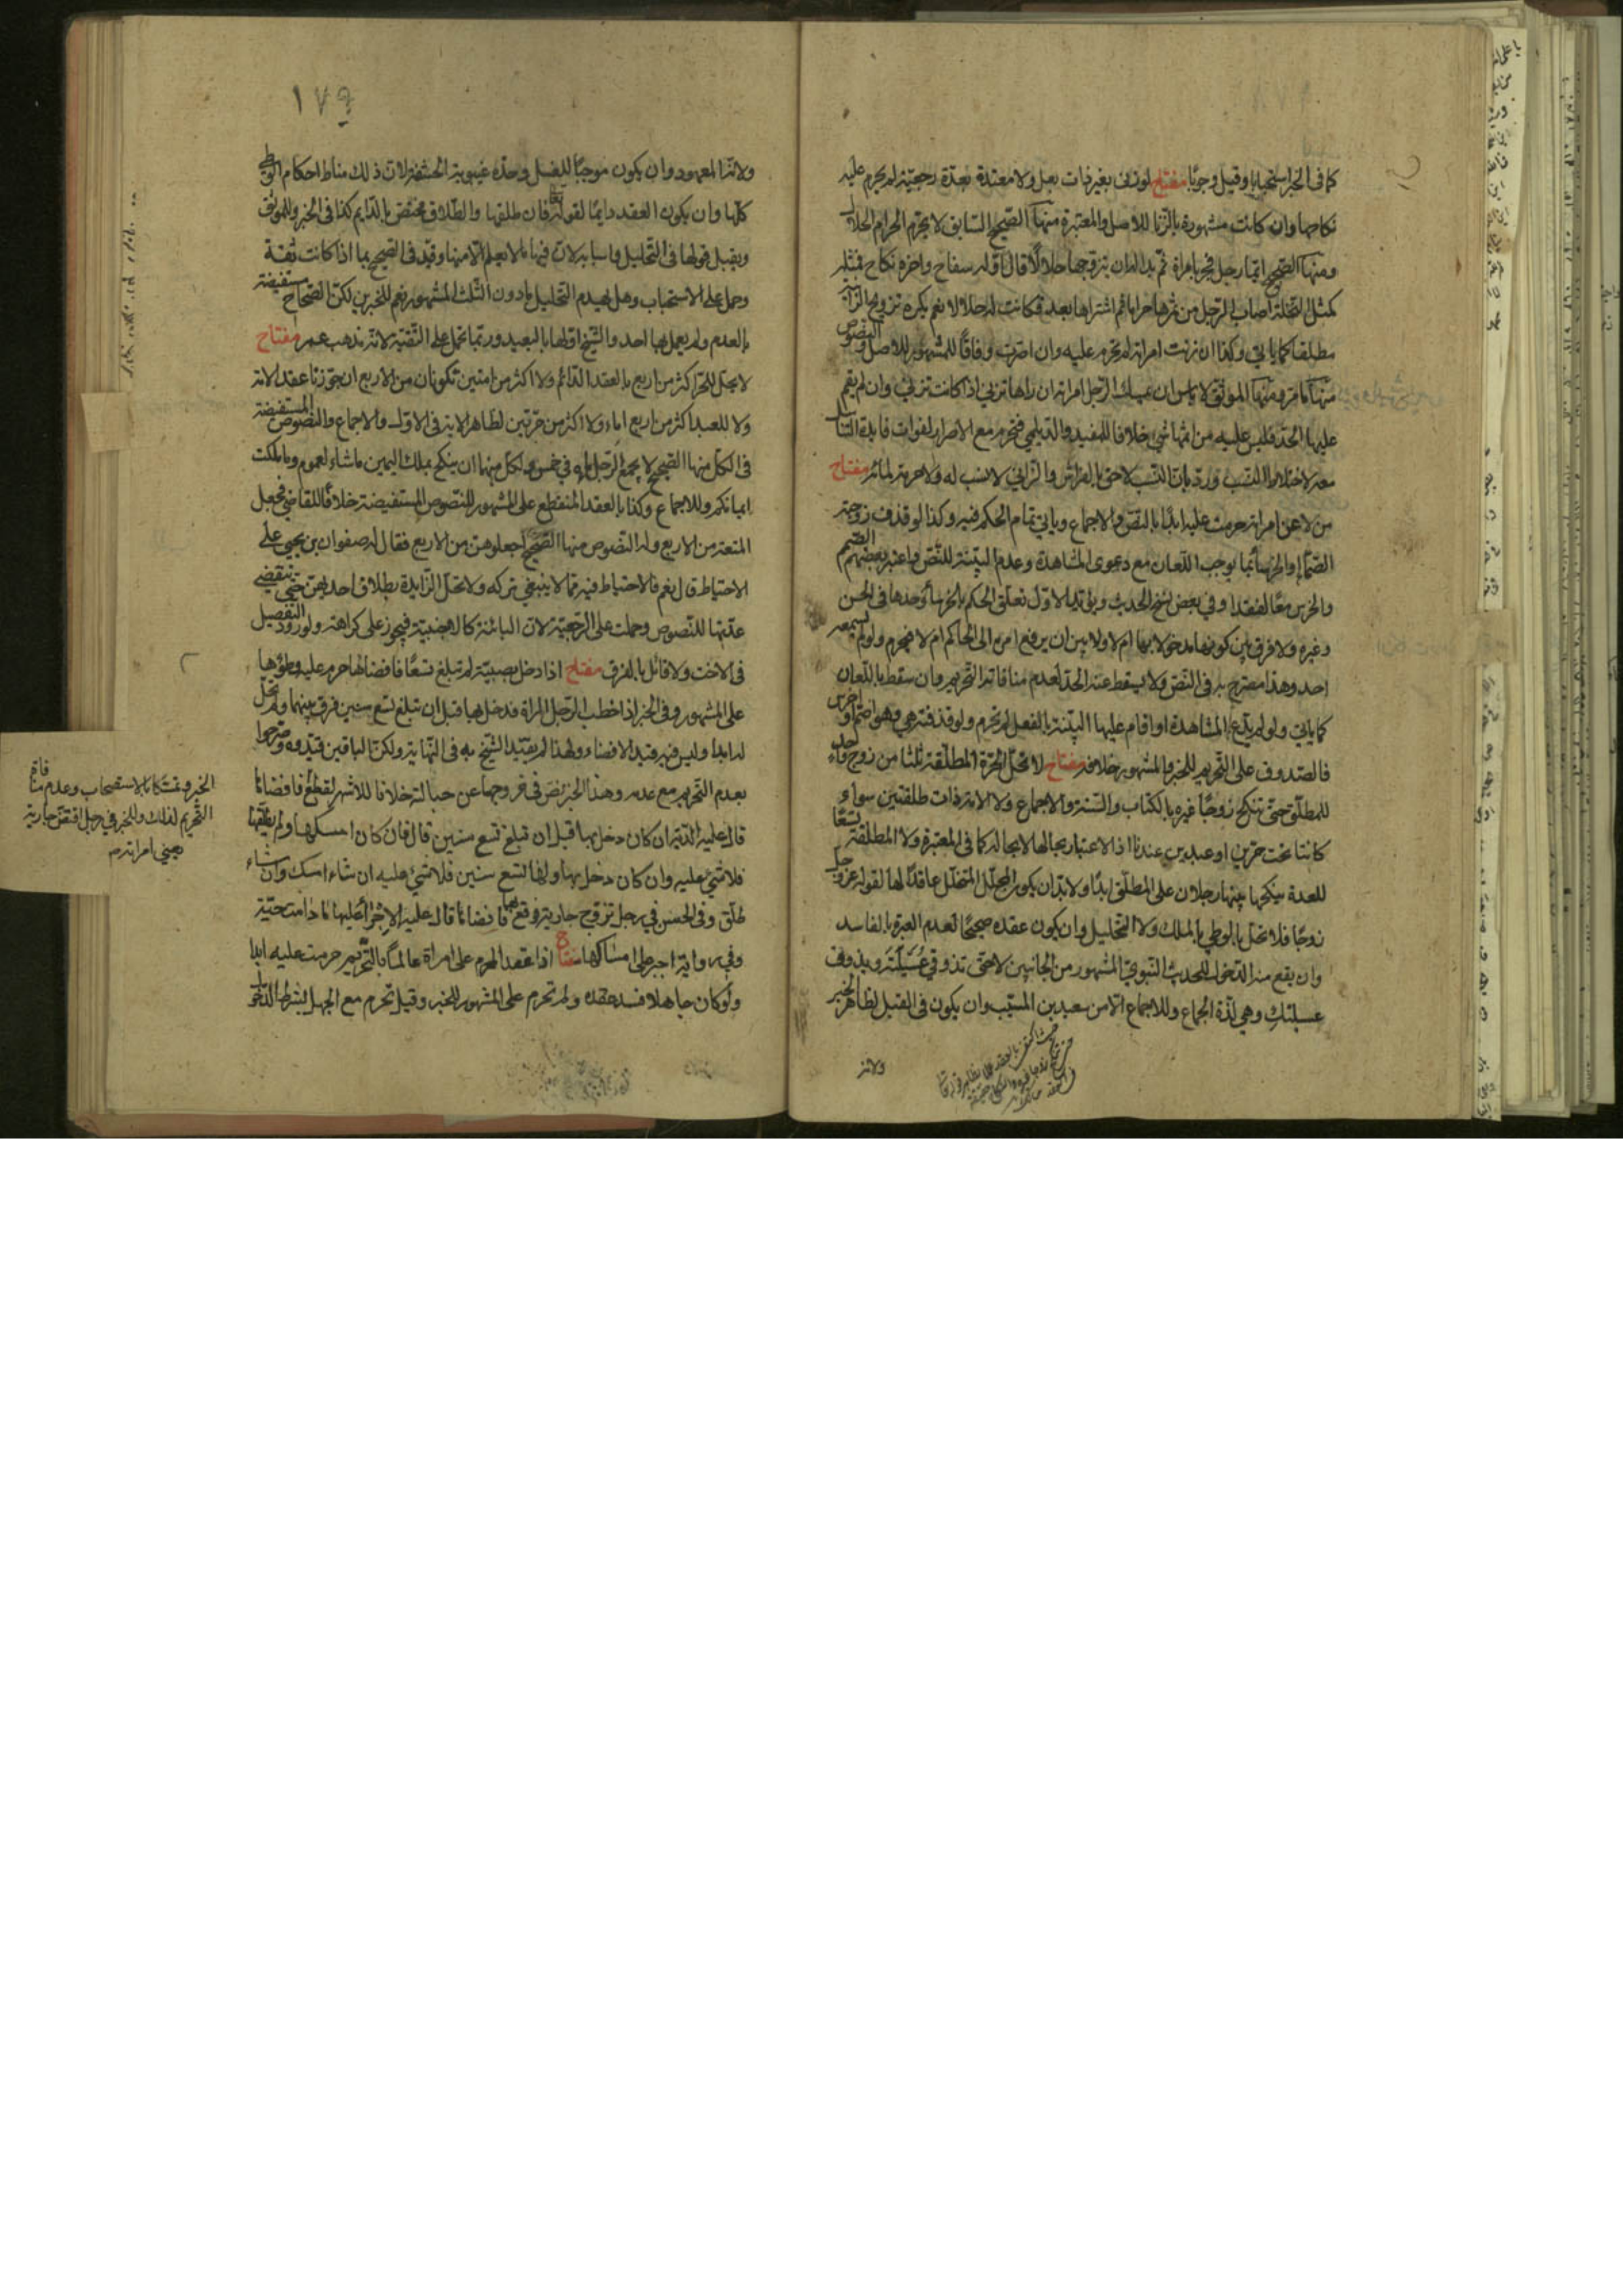 كما في الخبر استحبابا وقيل وجوبا مفتاح لو زنى بغير ذات بعل ولا معتدة بعدة رجعية لم يحرم عليه
نكاحها وان كانت مشهورة بالزنا للاصل والمعتبرة منها الصحيح السابق لا يحرم الحرام الحلال
ومنها الصحيح ايما رجل فجر بامراة ثم بدا له ان يتزوجها حلالا قال اوله سفاح واخره نكاح فمثله
كمثل النخلة اصاب الرجل من ثمرها حراما ثم اشتراها بعد فكانت له حلالا نعم يكره تزويج الزانية
مطلقا كما ياتي وكذا ان زنت امراته لم تحرم عليه وان اصرت وفاقا للمشهور للاصل والنصوص
منها ما مر ومنها الموثق لا باس ان يمسك الرجل امراته ان راها تزني اذا كانت تزني وان لم يقم
عليها الحد فليس عليه من اثمها شيء خلافا للمفيد والديلمي فتحرم مع الاصرار لفوات فايدة التناسل
معه لاختلاط النسب ورد بان النسب لاحق بالفراش والزاني لا نسب له ولا حرمة لمائه مفتاح
من لاعن امراته حرمت عليه ابدا بالنص والاجماع وياتي تمام الحكم فيه وكذا لو قذف زوجته
الصماء او الخرساء بما يوجب اللعان مع دعوى المشاهدة وعدم البينة للنص واعتبر بعضهم الصمم
والخرس معا لفقد او في بعض نسخ الحديث ويؤيد الاول تعلق الحكم بالخرساء وحدها في الحسن
وغيره ولا فرق بين كونها مدخولا بها ام لا ولا بين ان يرفع امره الى الحاكم ام لا فيحرم ولو لم يسمعه
احد وهذا مصرح به في النص ولا يسقط عنه الحد لعدم منافاته التحريم وان سقط باللعان
كما ياتي ولو لم يدع المشاهدة او اقام عليها البينة بالفعل لم تحرم ولو قذفته هي وهو اصم او اخرس
فالصدوق على التحريم للخبر والمشهور خلافه مفتاح لا تحل الحرة المطلقة ثلثا من زوج واحد
للمطلق حتى تنكح زوجا غيره بالكتاب والسنة والاجماع ولا الامة ذات طلقتين سواء
كانتا تحت حرين او عبدين عندنا اذ الاعتبار بحالها لا بحاله كما في المعتبرة ولا المطلقة تسعا
للعدة ينكحها بينها رجلان على المطلق ابدا ولا بد ان يكون المحلل المتخلل عاقدا لها لقوله عز وجل
زوجا فلا تحل بالوطي بالملك ولا التحليل وان يكون عقده صحيحا لعدم العبرة بالفاسد
وان يقع منه الدخول للحديث النبوي المشهور من الجانبين لا حتى تذوقي عسيلته ويذوق
عسيلتك وهي لذة الجماع وللاجماع الا من سعيد بن المسيب وان يكون في القبل لظاهر الخبر
ولانه
١٧٩
ولانه المعهود وان يكون موجبا للغسل وحده غيبوبة الحشفة لان ذلك مناط احكام الوطي
كلها وان يكون العقد دايما لقوله تعالى فان طلقها والطلاق مختص بالدايم كذا في الخبر وللموثق
ويقبل قولها في التحليل واسبابه لان فيها ما لا يعلم الا منها وقيد في الصحيح بما اذا كانت ثقة
وحمل على الاستحباب وهل يهدم التحليل ما دون الثلث المشهور نعم للخبرين لكن الصحاح مستفيضة
بالعدم ولم يعمل بها احد والشيخ اولها بالبعيد وربما تحمل على التقية لانه مذهب عمر مفتاح
لا يحل للحر اكثر من اربع بالعقد الدائم ولا اكثر من امتين تكونان من الاربع ان جوزنا عقد الامة
ولا للعبد اكثر من اربع اماء ولا اكثر من حرتين لظاهر الاية في الاول والاجماع والنصوص المستفيضة
في الكل منها الصحيح لا يجمع الرجل ماءه في خمس ولكل منهما ان ينكح بملك اليمين ما شاء لعموم وما ملكت
ايمانكم وللاجماع وكذا بالعقد المنقطع على المشهور للنصوص المستفيضة خلافا للقاضي فجعل
المتعة من الاربع وله النصوص منها الصحيح اجعلوهن من الاربع فقال له صفوان بن يحيى على
الاحتياط قال نعم فالاحتياط فيه مما لا ينبغي تركه ولا تحل الزايدة بطلاق احديهن حتى تنقضي
عدتها للنصوص وحملت على الرجعية لان البائنة كالاجنبية فيجوز على كراهة ولورود التفصيل
في الاخت ولا قائل بالفرق مفتاح اذا دخل بصبية لم تبلغ تسعا فافضاها حرم عليه وطؤها
على المشهور وفي الخبر اذا خطب الرجل المراة فدخل بها قبل ان تبلغ تسع سنين فرق بينهما ولم تحل
له ابدا وليس فيه قيد الافضاء ولهذا لم يقيد الشيخ به في النهاية ولكن الباقين قيدوه وصرحوا
بعدم التحريم مع عدمه وهذا الخبر نص في خروجها عن حباله خلافا للاشهر لقطع فافضائها
قال عليه الدية ان كان دخل بها قبل ان تبلغ تسع سنين قال فان كان امسكها ولم يطلقها
فلا شيء عليه وان كان دخل بها ولها تسع سنين فلا شيء عليه ان شاء امسك وان شاء
طلق وفي الحسن في رجل تزوج جارية فوقع بها فافضاها قال عليه الاجراء عليها ما دامت حية
وفي رواية اجبر على امساكها مفتاح اذا عقد المحرم على امراة عالما بالتحريم حرمت عليه ابدا
ولو كان جاهلا فسد عقده ولم تحرم على المشهور للخبر وقيل تحرم مع الجهل بشرط الدخول
الخبر وتمسكا بالاستصحاب وعدم منافاة
التحريم لذلك وللخبر في رجل افتض جارية
يعني امراته م